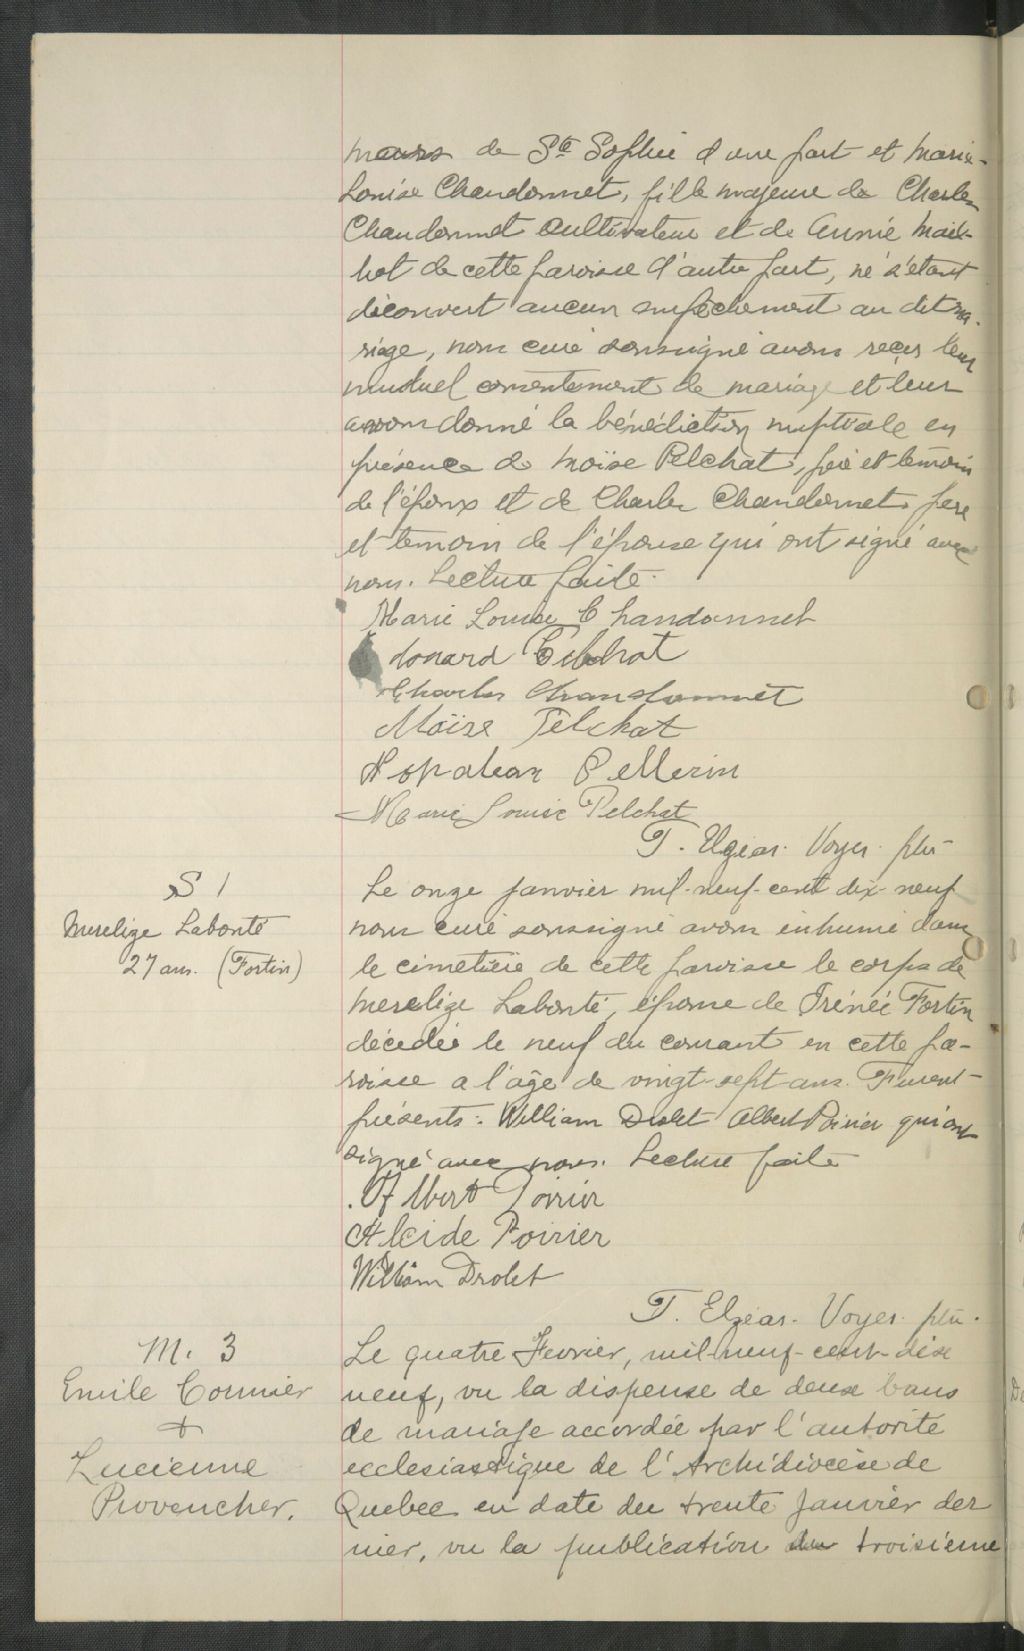 mours de Ste Sophie d'une part et Marie-
Louise Chandonnet, fille majeure de Charles
Chandonnet cultivateur et de Annie Mail-
hot de cette paroisse d'autre part, ne s'étant
découvert aucun empêchement au dit ma-
riage, nous curé soussigné avons reçus leur
mutuel consentement de mariage et leur
avons donné la bénédiction nuptiale en
présence de Moïse Pelchat, père et témoin
de l'époux et de Charles Chandonnet père
et temoin de l'épouse qui ont signé avec
nous. Lecture faite.
Marie Louise Chandonnet
Edouard Pelchat
Charles Chandonnet
Moïse Pelchat
Napoleon Pellerin
Marie Louise Pelchat
T. Elzéar Voyer ptre
S 1
Merelize Labonté
27 ans. (Fortin)
Le onze janvier mil-neuf-cent dix-neuf
nous curé soussigné avons inhumé dans
le cimetière de cette paroisse le corps de
Merelize Labonté, épouse de Irénée Fortin
décédée le neuf du courant en cette pa-
roisse a l'âge de vingt-sept ans. Furent
présents: William Drolet Albert Poirier qui ont
signé avec nous. Lecture faite
Albert Poirier
Alcide Poirier
William Drolet
T. Elzéar Voyer ptre.
M. 3
Emile Cormier
+
Lucienne
Provencher.
Le quatre Fevrier, mil-neuf-cent-dix
neuf, vu la dispense de deux bans
de mariage accordée par l'autorité
ecclesiastique de l'Archidiocèse de
Quebec en date du trente Janvier der
nier, vu la publication du troisième